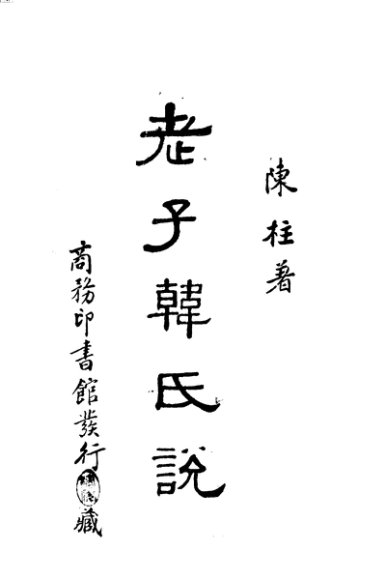 陳柱著
老子韓氏說
商務印書館發行
藏